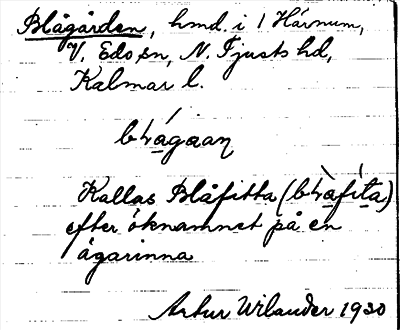 Blågården, hmd. i 1 Hárnum,
V. Edo sn, N. Tjusts hd,
Kalmar l.
Kallas Blåfitta (
efter öknamnet på en
ägarinna
Artur Wilander 1930